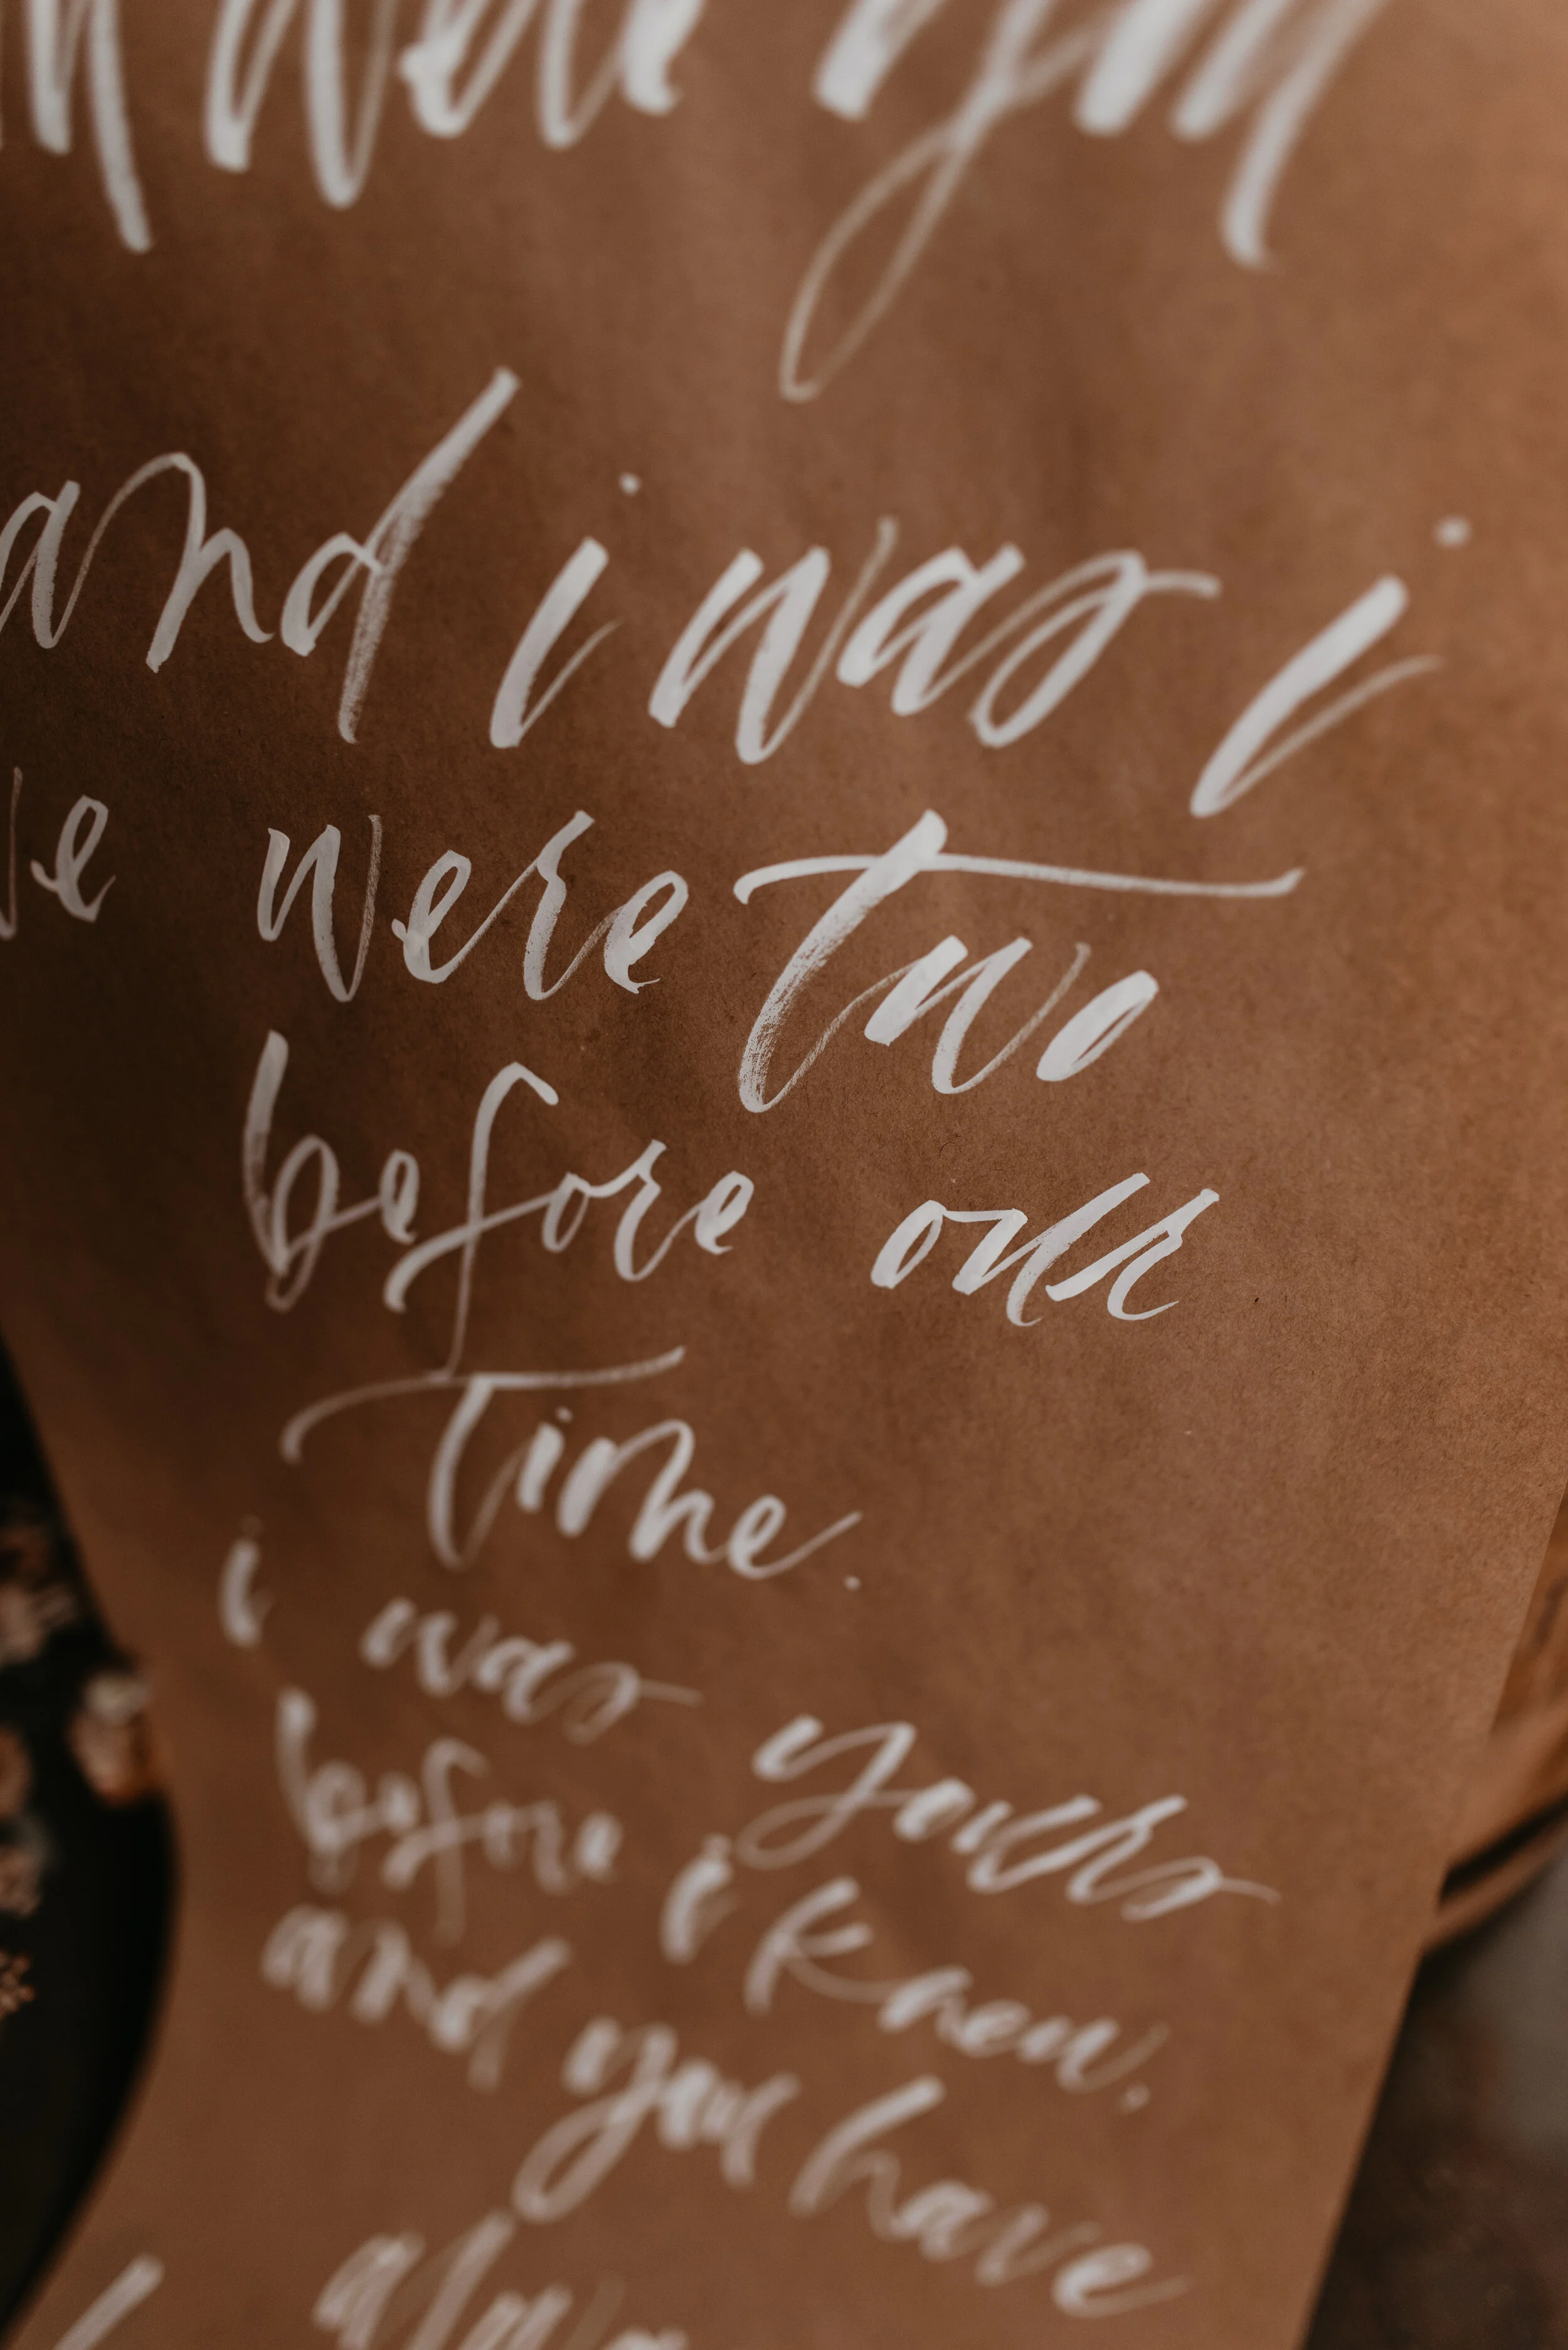 were you
and i was i
we were two
before our
time.
i was yours
before i knew.
and you have